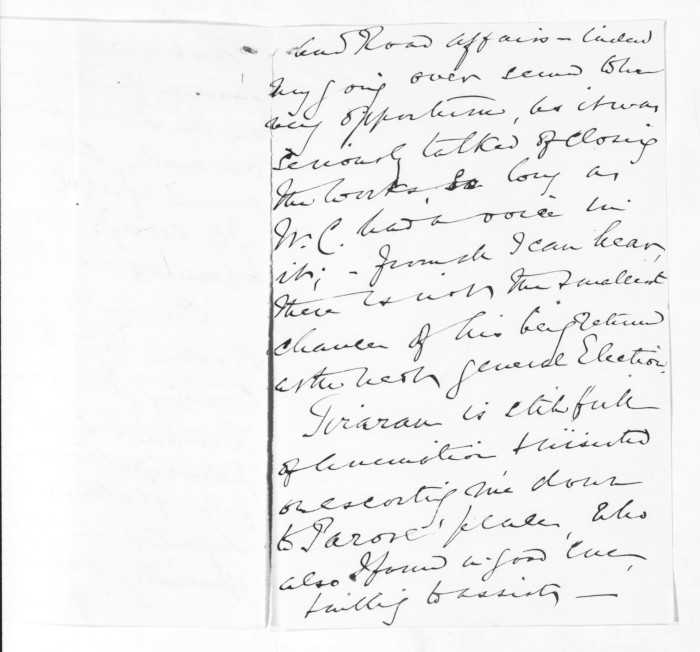 and Road affairs – indeed
my going over seemed to be
very opportune, as it was
seriously talked of closing
the works so long as
W. C. had a voice in
it; – from wh I can hear,
there is not the smallest
chance of his being returned
at the next general Election.
Tirarau is still full
of & insisted
on escorting me down
to Parore's place, who
also I found in good
& willing to assist –